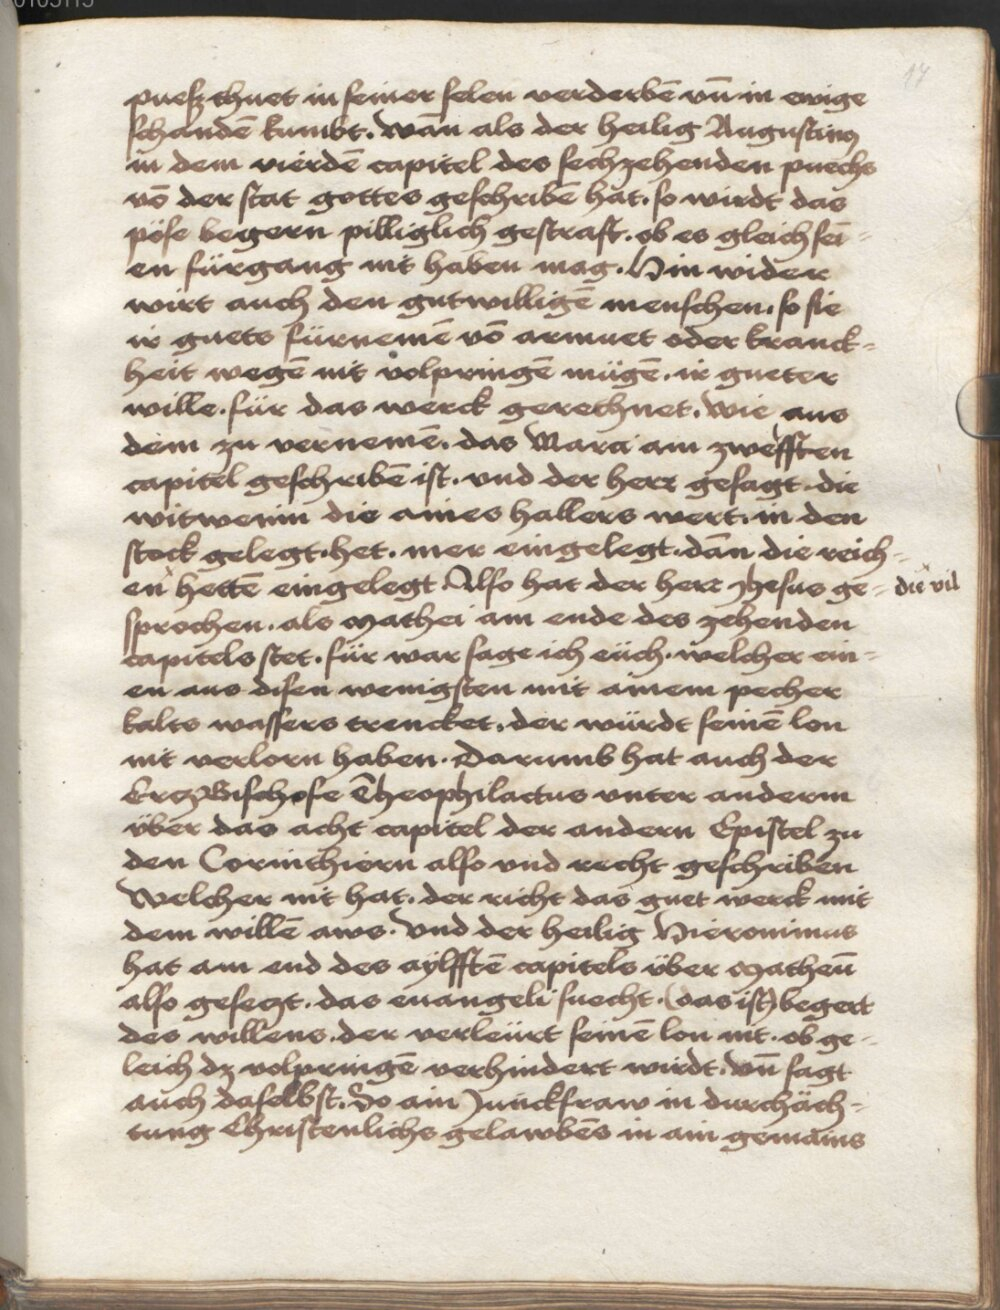 17
puesz thuet in seiner selen verderbē vn̄ in ewige
schandē kumbt. wān als der heilig Augustinus
in dem vierdē capitel des sechzehenden puechs
vō der stat gottes geschribē hat. so wirdt das
pöse begern pilliglich gestrafft. ob es gleich sei=
en fürgang nit haben mag. Hin wider
wirt auch den gutwilligē menschen. so sie
ir guets fürnemē vō armuet oder kranck=
heit wegē nit volpringē mügē. ir gueter
wille. für das werck gerechnet. wie aus
dem zu vernemē. das Marci am zwelfften
capitel geschribē ist. und der herr gesagt. die
witwenin die aines hallers wert. in den
stock gelegt. het. mer eingelegt. dān die reich=
en hettē eingelegt. Also hat der herr Jhesus ge=
die vil
sprochen. als Mathei am ende des zehenden
capitels stet. für war sage ich eüch. welcher ein=
en aus disen wenigsten mit ainem pecher
kalts wassers trencket. der würdt seinē lon
nit verlorn haben. Darumb hat auch der
ErczBischofe Theophilactus vnter anderm
über das acht capitel der andern Epistel zu
den Corinthiern also vnd recht geschriben
Welcher nit hat. der richt das guet werck mit
dem willē aws. Und der heilig Hieronimus
hat am end des aylfftē capitels über Matheū
also gesetzt. das euangeli suecht. (das ist) begert
des willens. der verleürt seinē lon nit. ob ge=
leich dz volpringē verhindert wirdt. vn̄ sagt
auch daselbst. So ain Junckfraw in durchäch=
tung Christenlichs gelawbēs in ain gemains